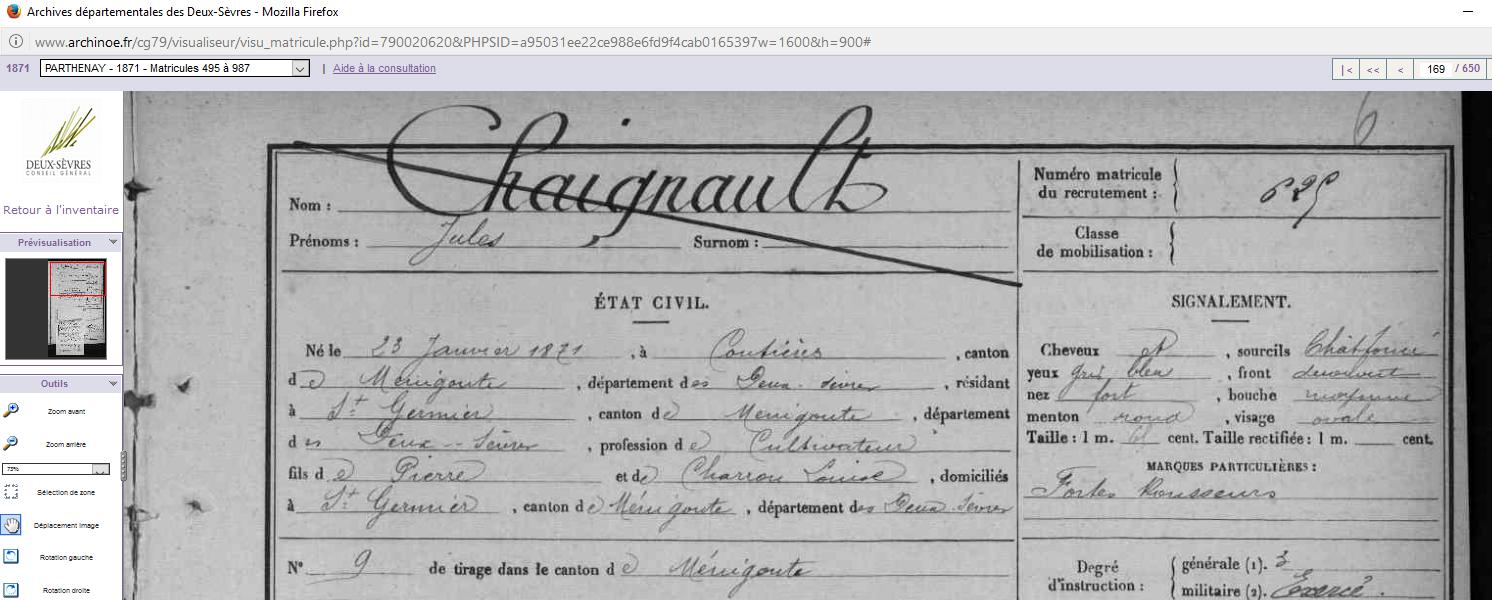 Archives départementales des Deux-Sèvres - Mozilla Firefox
www.archinoe.fr/cg79/visualiseur/visu_matricule.php?id=790020620&PHPSID=a95031ee22ce988e6fd9f4cab0165397w=1600&h=900#
1871 PARTHENAY - 1871 - Matricules 495 à 987 | Aide à la consultation |< << < 169 / 650
DEUX-SÈVRES
CONSEIL GÉNÉRAL
Retour à l'inventaire
Prévisualisation
Outils
Zoom avant
Zoom arrière
75%
Sélection de zone
Déplacement image
Rotation gauche
Rotation droite
6
Nom : Chaignault
Prénoms : Jules Surnom :
Numéro matricule
du recrutement : 625
Classe
de mobilisation :
ÉTAT CIVIL.
Né le 23 Janvier 1871, à Coutières, canton
de Ménigoute, département des Deux-Sèvres, résidant
à St Germier, canton de Ménigoute, département
des Deux-Sèvres, profession de Cultivateur
fils de Pierre et de Charron Louise, domiciliés
à St Germier, canton de Ménigoute, département des Deux-Sèvres
N° 9 de tirage dans le canton de Ménigoute
SIGNALEMENT.
Cheveux et, sourcils Chât foncé
yeux gris bleu, front découvert
nez fort, bouche moyenne
menton rond, visage ovale
Taille : 1 m. 61 cent. Taille rectifiée : 1 m. cent.
MARQUES PARTICULIÈRES :
Fortes Rousseurs
Degré
d'instruction :
générale (1). 3
militaire (2). Exercé.